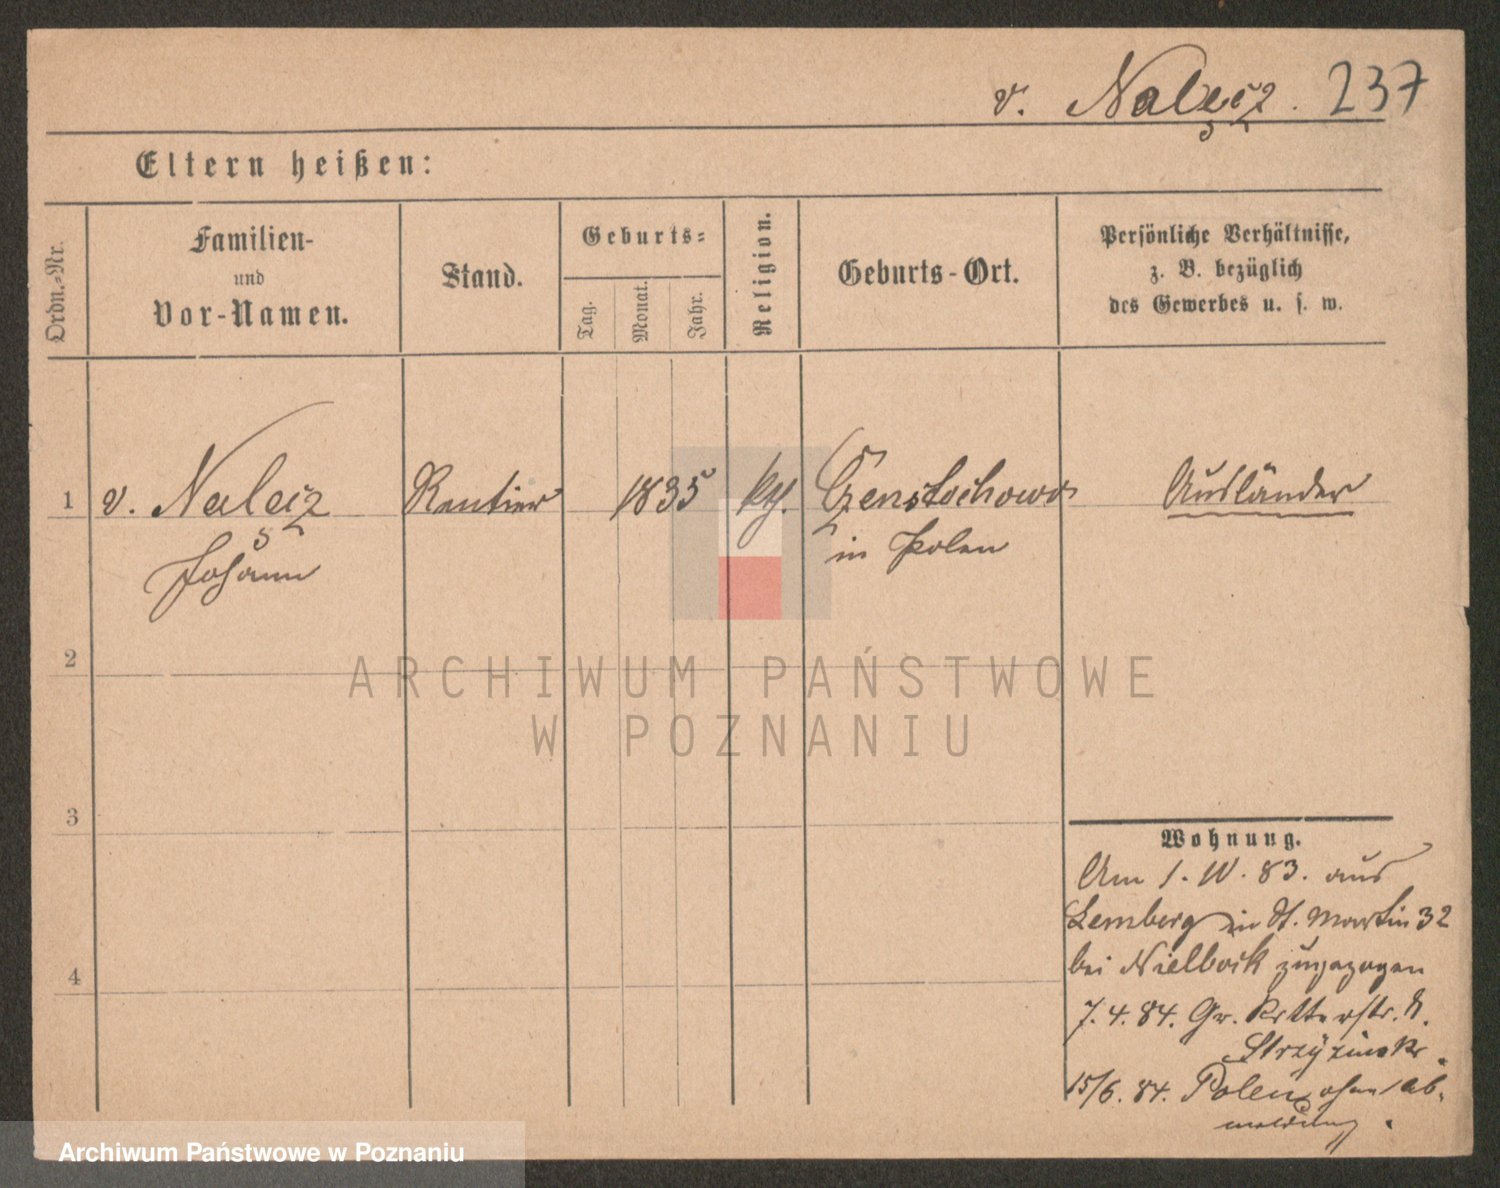 v. Nalęcz. 237
Eltern heißen:
Ordn.-Nr.
Familien-
und
Vor-Namen.
Stand.
Geburts-
Tag.
Monat.
Jahr.
Religion.
Geburts-Ort.
Persönliche Verhältnisse,
z. B. bezüglich
des Gewerbes u. s. w.
1 v. Nalęcz Rentier 1835 Czenstochowo Ausländer
Johann in Polen
2
ARCHIWUM PAŃSTWOWE
W POZNANIU
3
Wohnung.
Am 1. IV. 83. aus
Lemberg in St. Martin 32
bei zugezogen
4
7. 4. 84. Gr. Ritterstr. 8.
15/6. 84. Polen, ohne Ab-
meldung.
Archiwum Państwowe w Poznaniu